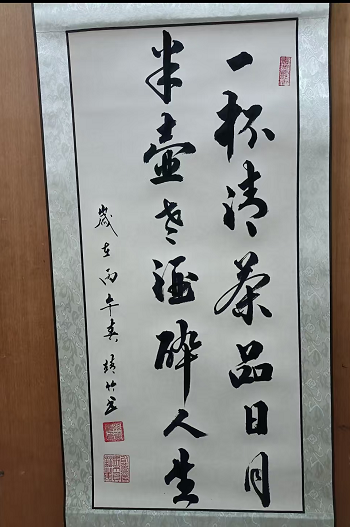 一杯清茶品日月
半壶老酒醉人生
岁在丙午春